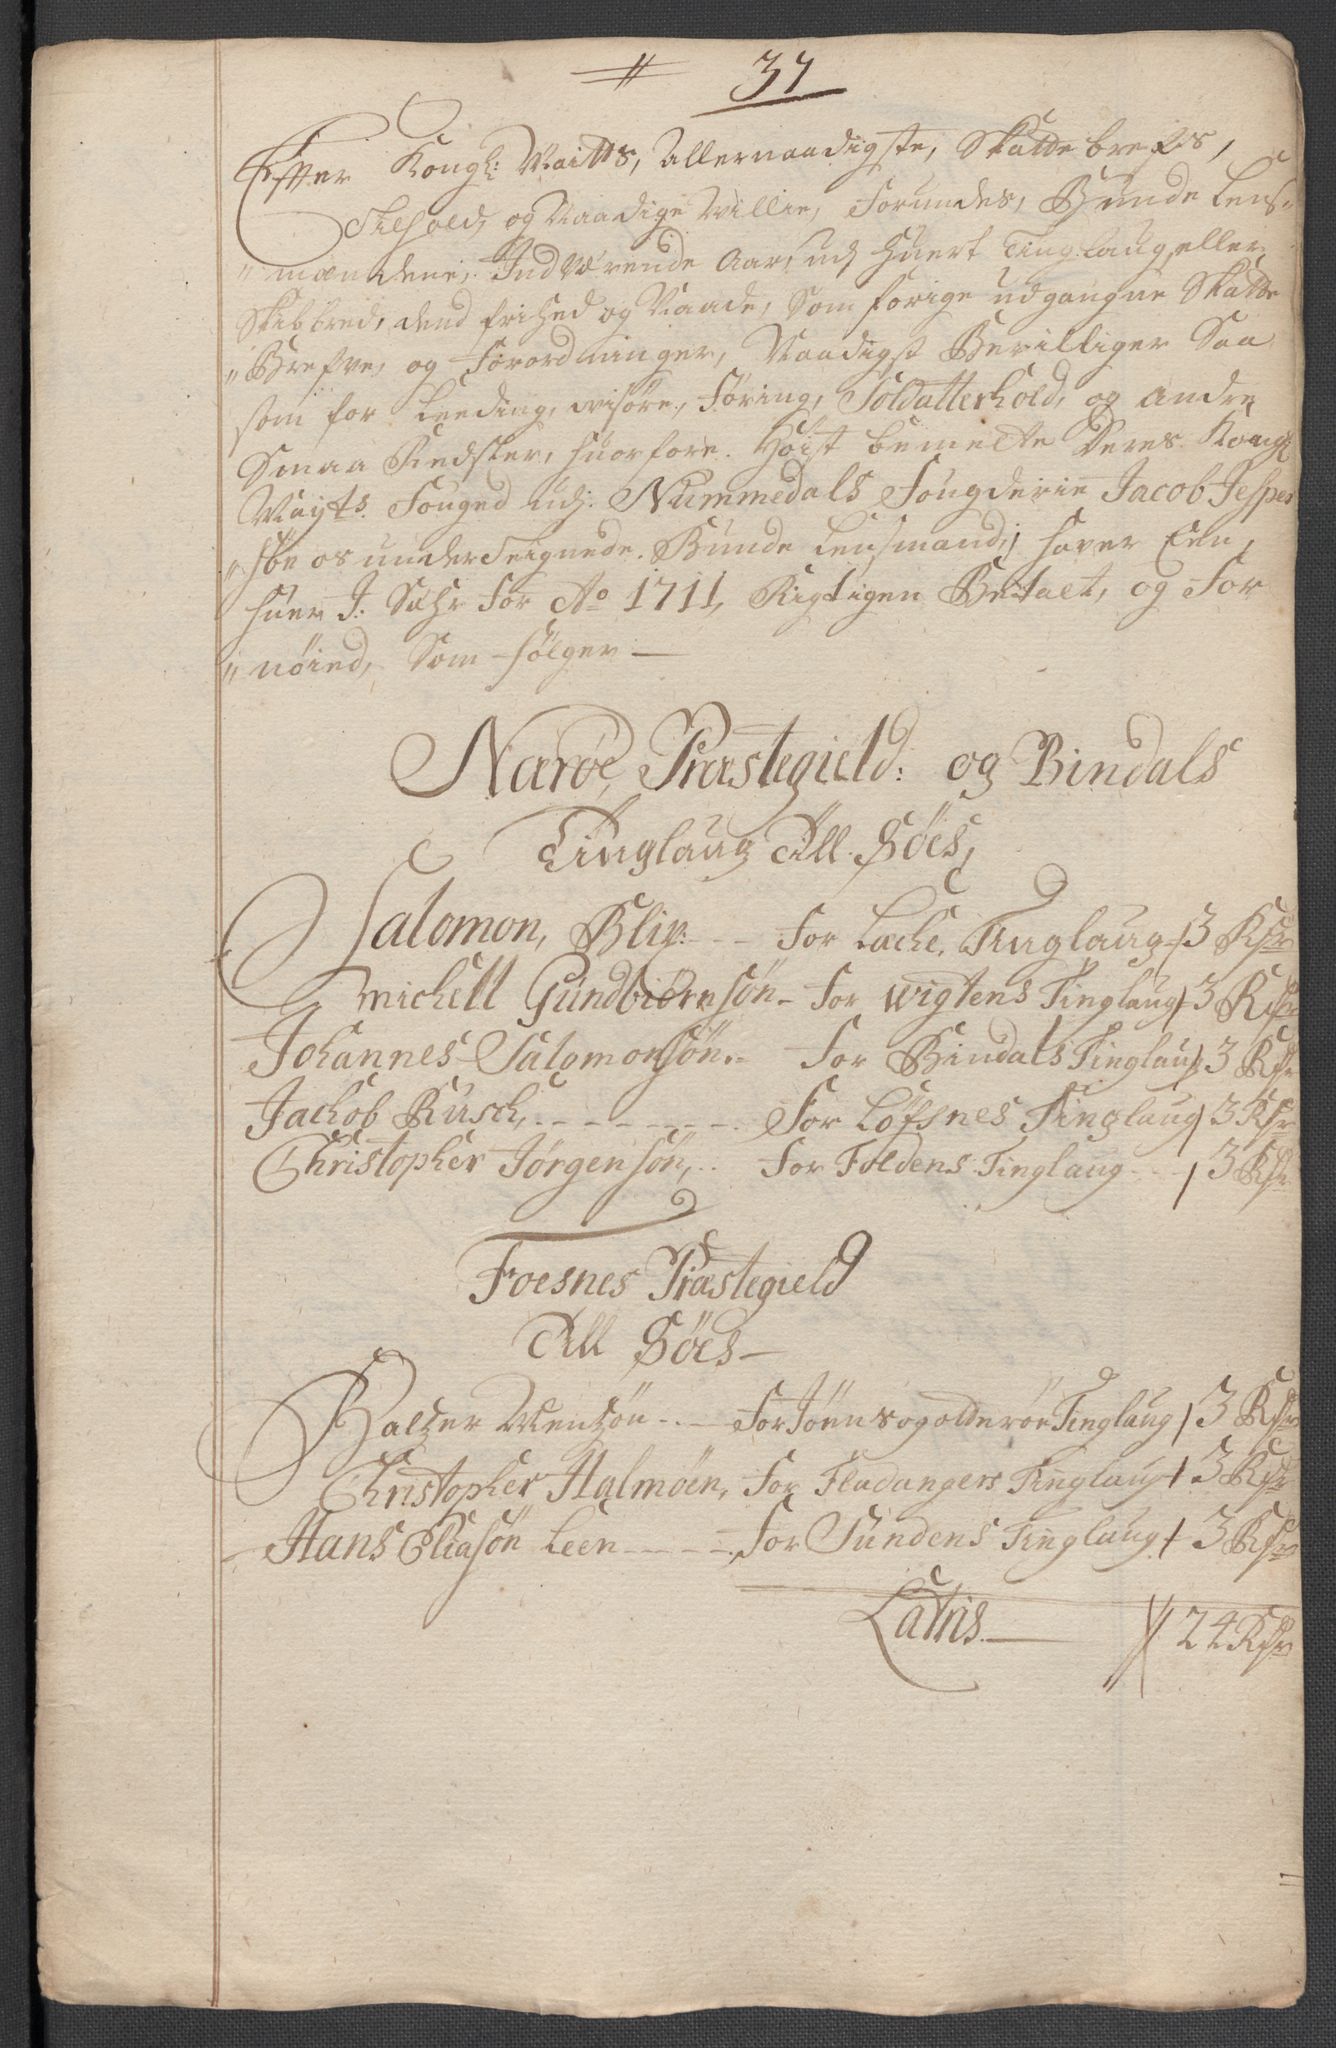 37
Effter Kongl: Maitts, Allernaadigste, Skattebrefs,
Tilhold, og Naadige Willie, Forundes, Bunde Lens-
"mændene, Indværende Aar, udj Huert Tinglaug eller
Skibbred, dend frihed og Naade, Som forige udgangne Skatte
"Brefve, og Forordninger, Naadigst Bevilliger Saa
som for Leeding, wisøre, Føring, Soldatterhold, og Andre
Smaa Redsler, huorfore. Høist bemelte Deres Kongl
Mayts. Fouged udj. Nummedals Fougderie Jacob Jesper
"søn os underteignede. Bunde Lensmænd, haver Een,
huer J. Sæhr for Ao 1711, Rigtigen Betalt, og For
"nøied, Som følger
Narøe, Præstegield: og Bindals
Tinglaug Till Søes,
Salomon, Blix. - - for Leche, Tinglaug 3 Rdr
Michell Gundbiørnsøn - for Wigtens Tinglaug 3 Rdr
Johannes Salomonsøn. - for Bindals Tinglaug 3 Rdr
Jachob Busch, - - - - - - For Løfsnes Tinglaug 3 Rdr
Christopher Jørgensøn, .. for Foldens Tinglaug - - 3 Rdr
Foesnes Præstegield
Till Søes
Baltzer Mentzøn - . - For Jøen og Olderøe Tinglaug 3 Rdr
Christopher Halmøen, for Fladangers Tinglaug 3 Rdr
Hans Eliasøn Leen - - - - for Sundens Tinglaug 3 Rdr
Latris. 24 Rdr